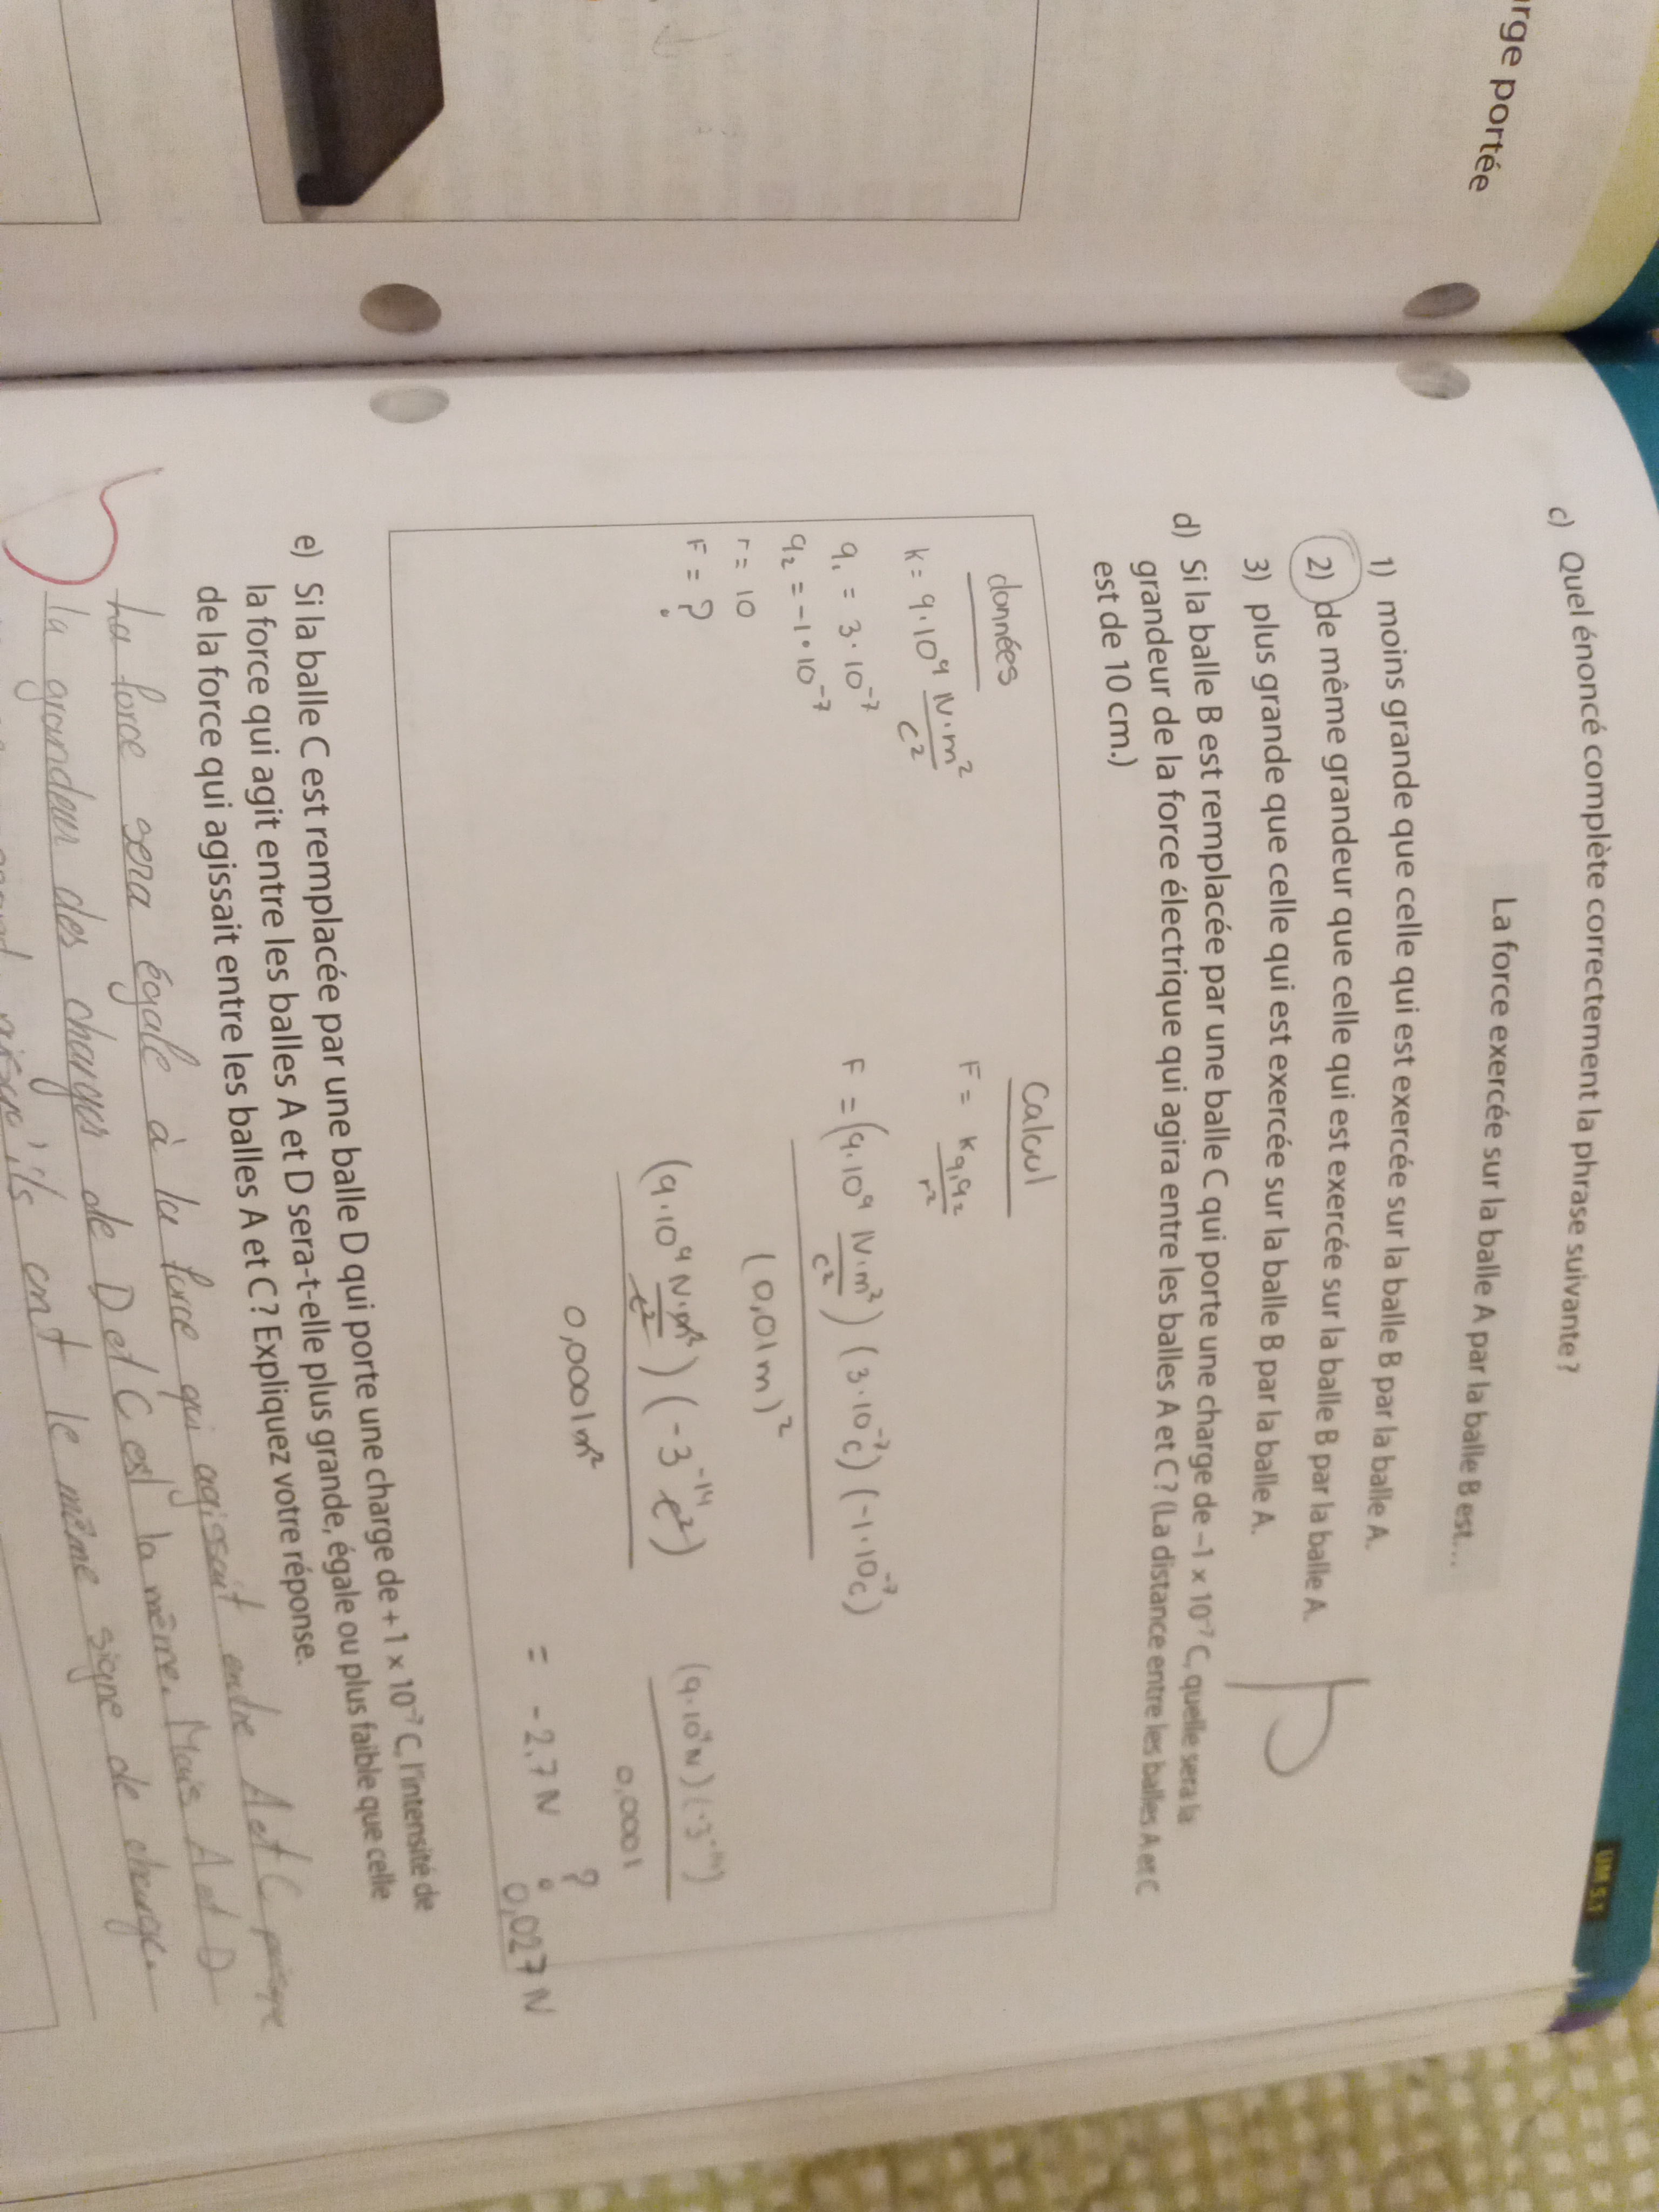 rge portée
UM 5.1
c) Quel énoncé complète correctement la phrase suivante ?
La force exercée sur la balle A par la balle B est…
1) moins grande que celle qui est exercée sur la balle B par la balle A.
2) de même grandeur que celle qui est exercée sur la balle B par la balle A.
3) plus grande que celle qui est exercée sur la balle B par la balle A.
d) Si la balle B est remplacée par une balle C qui porte une charge de –1 × 10⁻⁷ C, quelle sera la
grandeur de la force électrique qui agira entre les balles A et C ? (La distance entre les balles A et C
est de 10 cm.)
données
k = 9·10⁹ N·m²/C²
q₁ = 3·10⁻⁷
q₂ = -1·10⁻⁷
r = 10
F = ?
Calcul
F = k q₁q₂/r²
F = (9·10⁹ N·m²/C²) (3·10⁻⁷C) (-1·10⁻⁷C)
(0,01m)²
(9·10⁹ N·m²/C²) (-3⁻¹⁴ C²)
0,0001m²
(9·10⁹N)(-3⁻¹⁴)
0,0001
= -2,7 N ?
0,027 N
e) Si la balle C est remplacée par une balle D qui porte une charge de + 1 × 10⁻⁷ C, l'intensité de
la force qui agit entre les balles A et D sera-t-elle plus grande, égale ou plus faible que celle
de la force qui agissait entre les balles A et C ? Expliquez votre réponse.
La force sera égale à la force qui agissait entre A et C puisque
la grandeur des charges de D et C est la même. Mais A et D
puisqu'ils ont le même signe de charge.